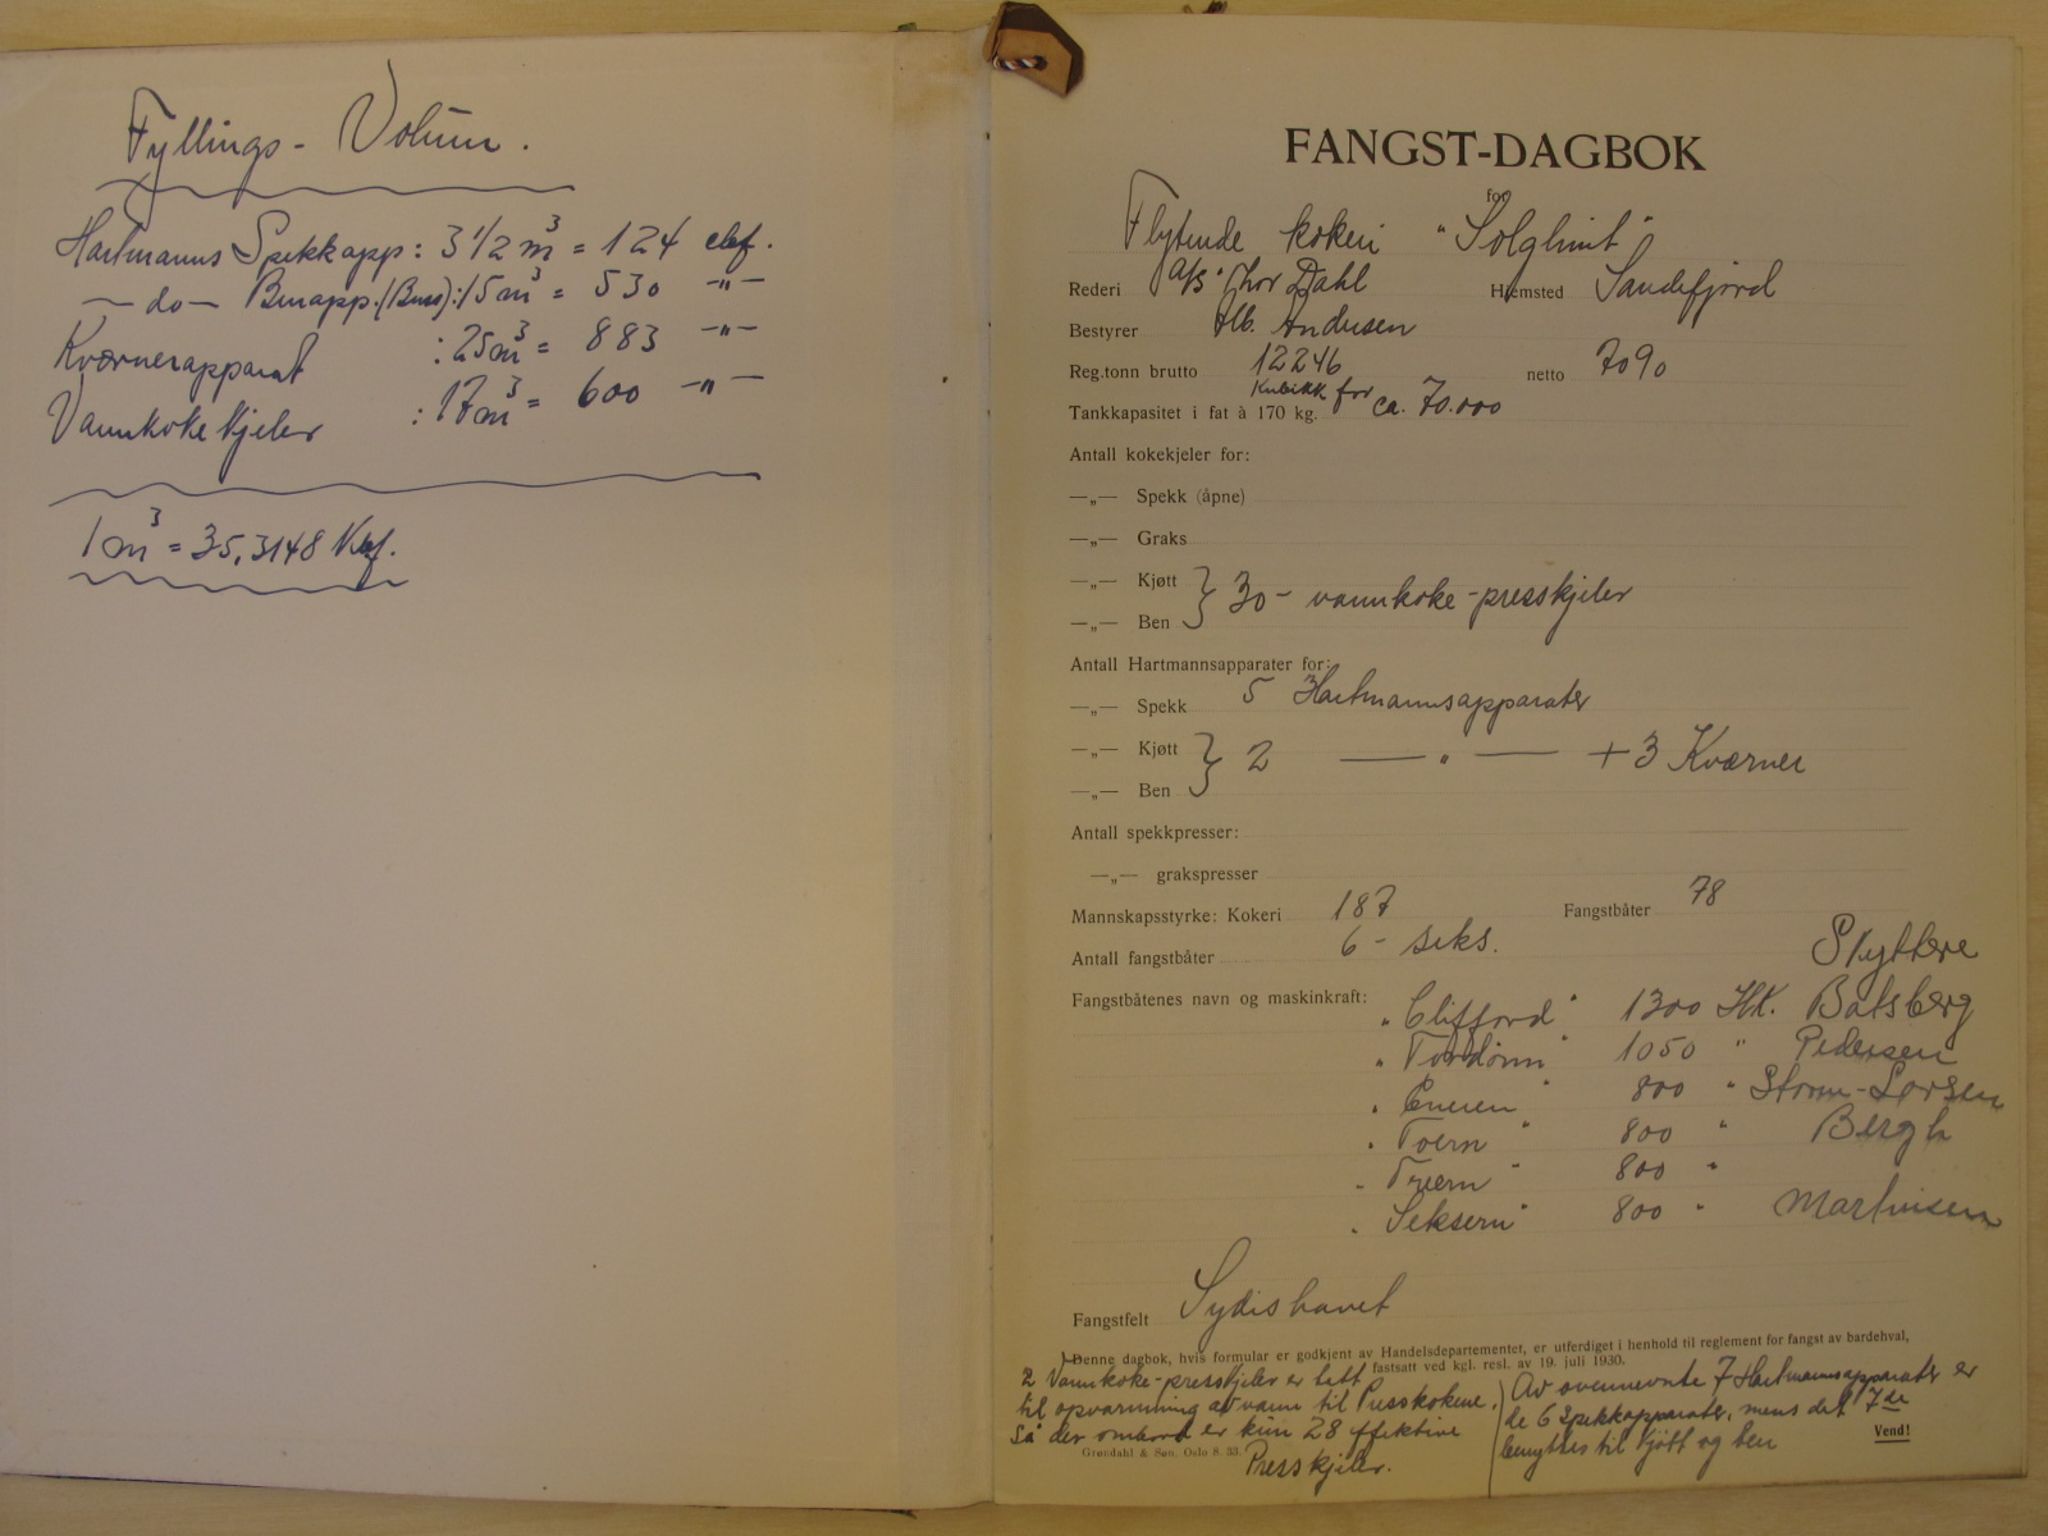 Fyllings - Volum.
Hartmanns Spekkapp: 3 1/2 m³ = 124 cbf.
— do — Benapp. (Buss): 15 m³ = 530 —"—
Kværnerapparat : 25 m³ = 883 —"—
Vannkokekjeler : 17 m³ = 600 —"—
1 m³ = 35,3148 Kbf.
FANGST-DAGBOK
for
Flytende kokeri "Solglimt"
Rederi A/S Thor Dahl Hjemsted Sandefjord
Bestyrer Alb. Andersen
Reg.tonn brutto 12246 netto 7090
Tankkapasitet i fat à 170 kg. Kubikk for ca. 70.000
Antall kokekjeler for:
—„— Spekk (åpne)
—„— Graks
—„— Kjøtt
—„— Ben } 30 - vannkoke-presskjeler
Antall Hartmannsapparater for:
—„— Spekk 5 Hartmannsapparater
—„— Kjøtt
—„— Ben } 2 — " — + 3 Kværner
Antall spekkpresser:
—„— grakspresser
Mannskapsstyrke: Kokeri 187 Fangstbåter 78
Antall fangstbåter 6 - seks.
Skyttere
Fangstbåtenes navn og maskinkraft:
"Clifford" 1300 HK. Batsberg
"Tordönn" 1050 " Pedersen
"Eneren" 800 " Storm-Larsen
"Toern" 800 " Bergh
"Treern" 800 "
"Seksern" 800 " Martinsen
Fangstfelt Sydishavet
Denne dagbok, hvis formular er godkjent av Handelsdepartementet, er utferdiget i henhold til reglement for fangst av bardehval,
fastsatt ved kgl. resl. av 19. juli 1930.
2 Vannkoke-presskjeler er tatt
til opvarmning av vann til Presskokene.
Så der ombord er kun 28 effektive
Presskjeler.
Av ovennevnte 7 Hartmannsapparater er
de 6 Spekkapparater, mens det 7de
benyttes til kjött og ben
Vend!
Grøndahl & Søn, Oslo 8. 33.